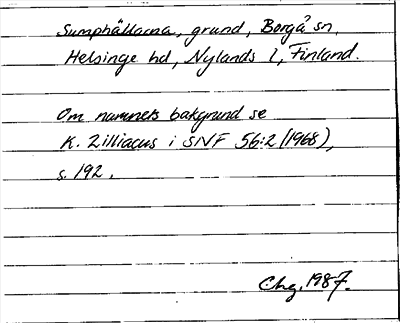 Sumphällarna, grund, Borgå sn,
Helsinge hd, Nylands l, Finland.
Om namnets bakgrund se
K. Zilliacus i SNF 56:2 (1968),
s. 192.
Chg. 1987.